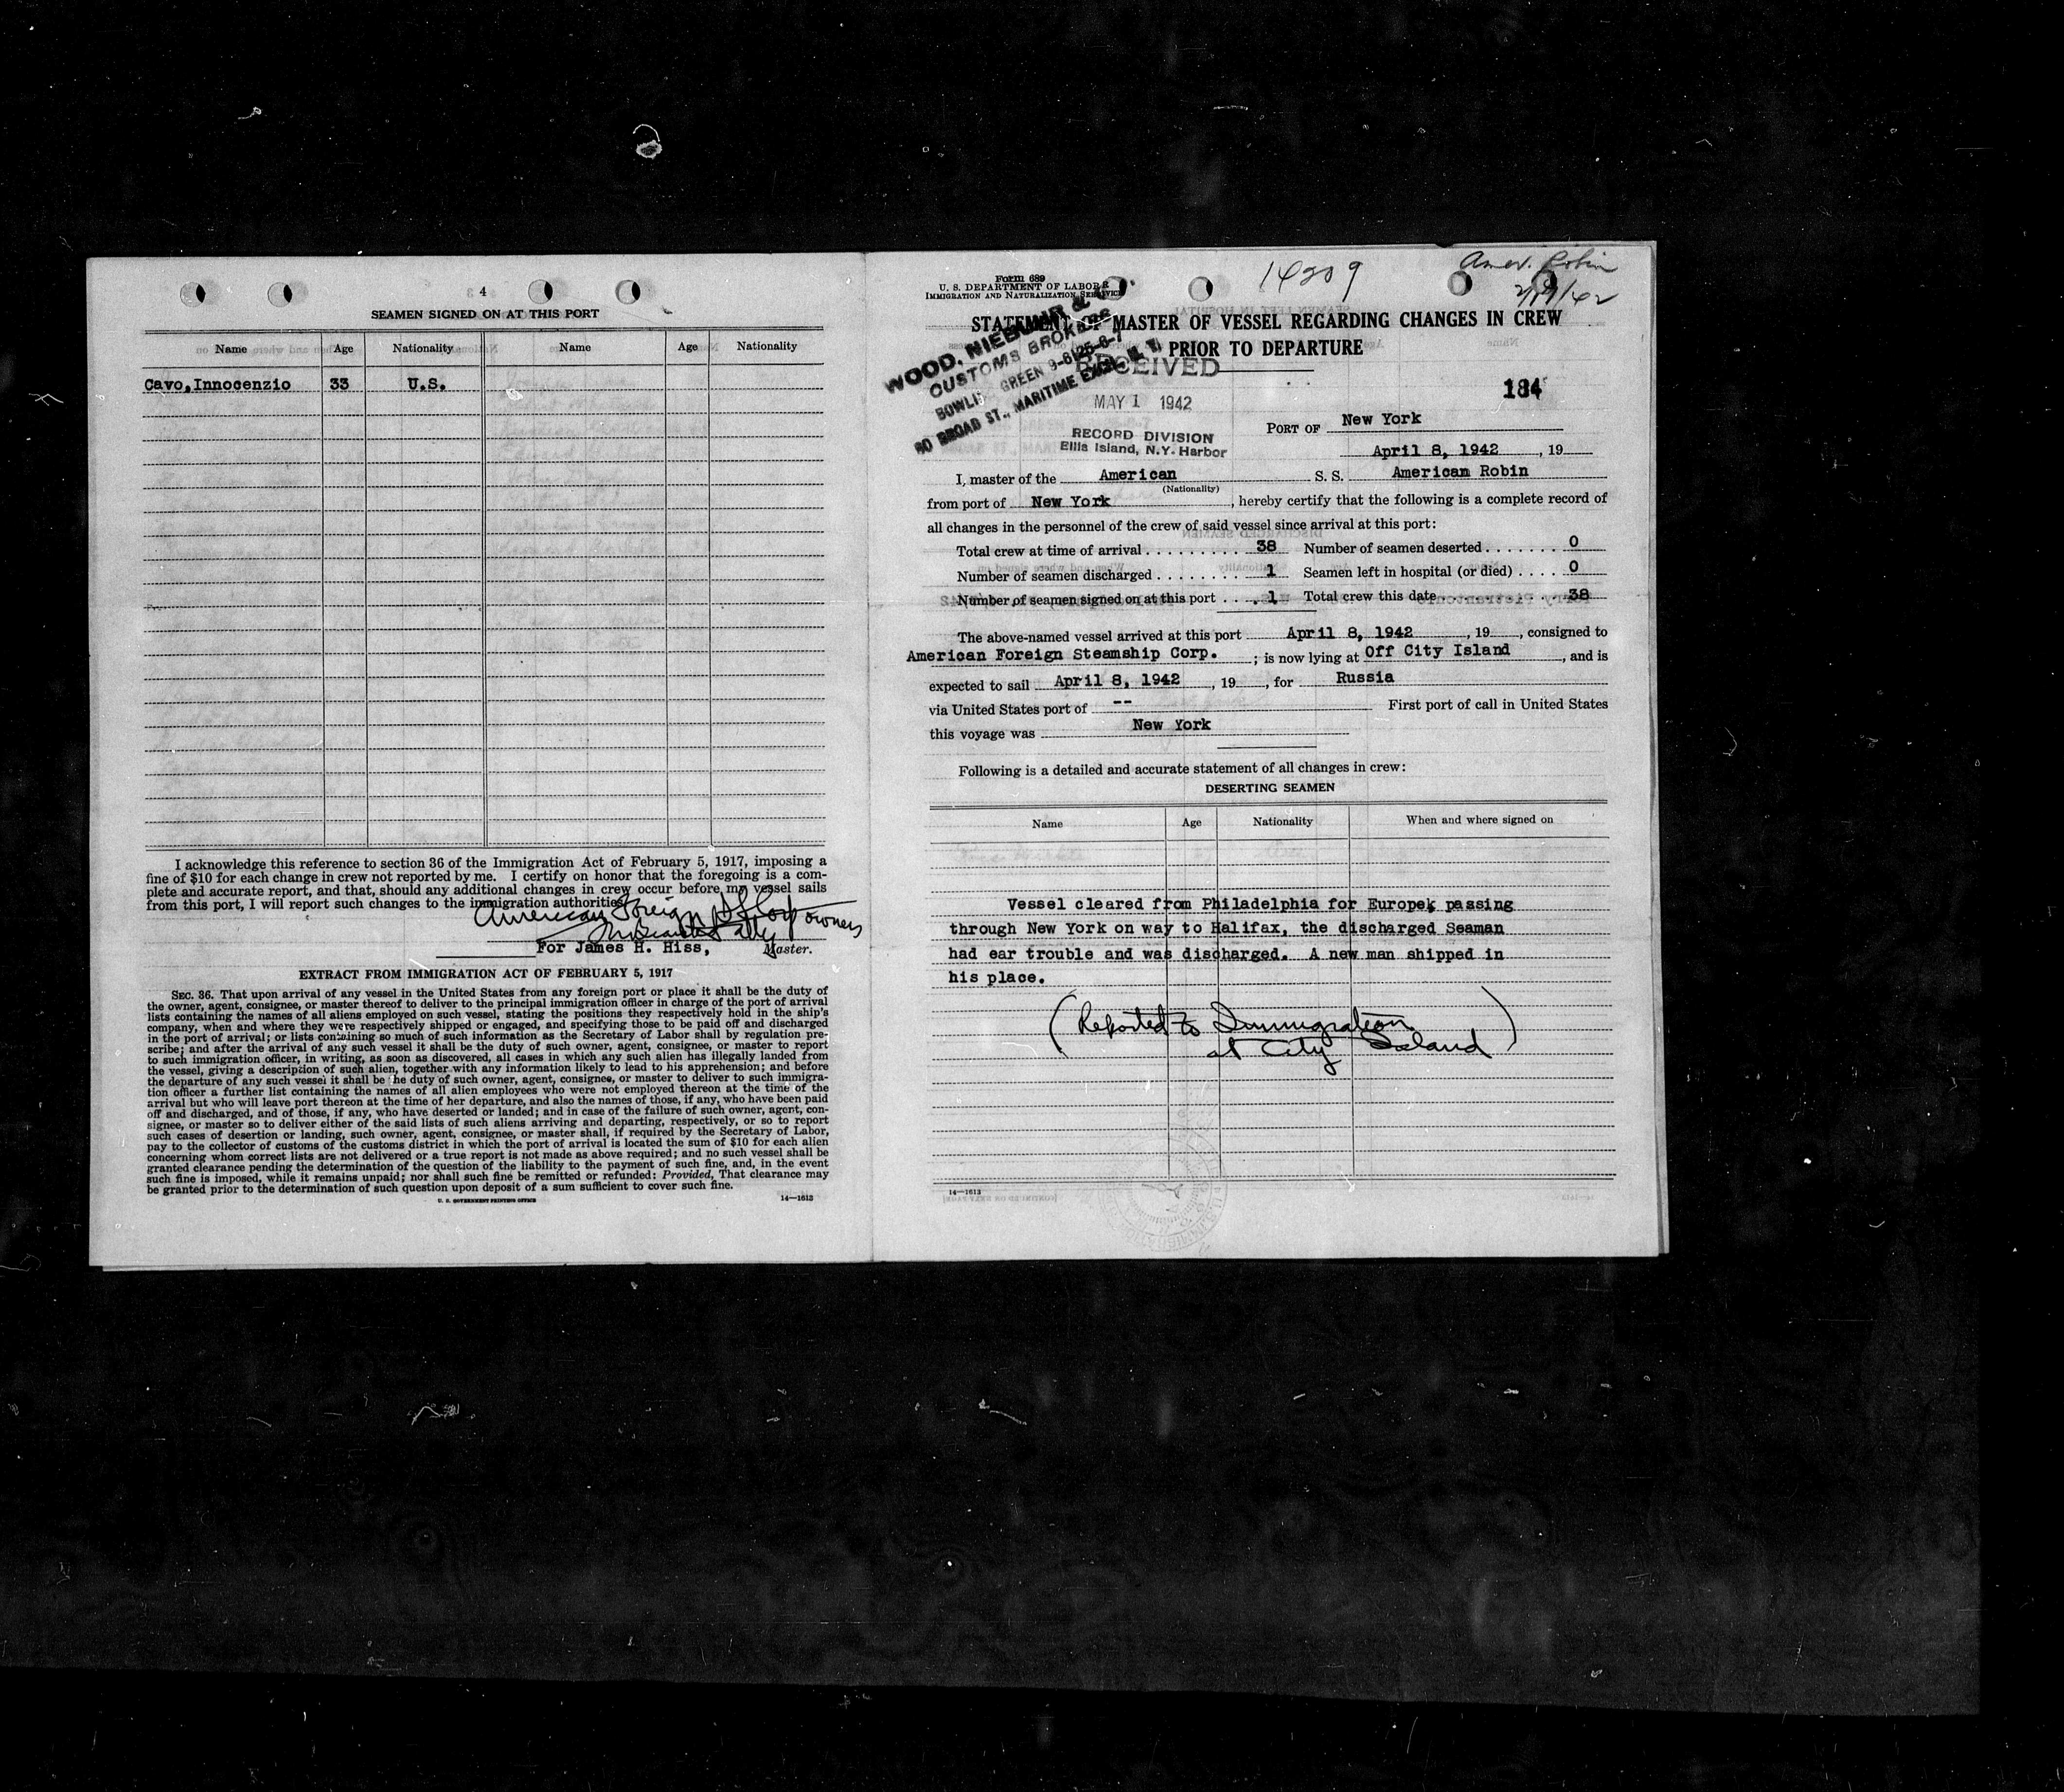 4
SEAMEN SIGNED ON AT THIS PORT
Name Age Nationality Name Age Nationality
Cavo, Innocenzio 33 U.S.
I acknowledge this reference to section 36 of the Immigration Act of February 5, 1917, imposing a
fine of $10 for each change in crew not reported by me. I certify on honor that the foregoing is a com-
plete and accurate report, and that, should any additional changes in crew occur before my vessel sails
from this port, I will report such changes to the immigration authorities.
American Foreign SS Corp owners
For James H. Hiss, Master.
EXTRACT FROM IMMIGRATION ACT OF FEBRUARY 5, 1917
SEC. 36. That upon arrival of any vessel in the United States from any foreign port or place it shall be the duty of
the owner, agent, consignee, or master thereof to deliver to the principal immigration officer in charge of the port of arrival
lists containing the names of all aliens employed on such vessel, stating the positions they respectively hold in the ship's
company, when and where they were respectively shipped or engaged, and specifying those to be paid off and discharged
in the port of arrival; or lists containing so much of such information as the Secretary of Labor shall by regulation pre-
scribe; and after the arrival of any such vessel it shall be the duty of such owner, agent, consignee, or master to report
to such immigration officer, in writing, as soon as discovered, all cases in which any such alien has illegally landed from
the vessel, giving a description of such alien, together with any information likely to lead to his apprehension; and before
the departure of any such vessel it shall be the duty of such owner, agent, consignee, or master to deliver to such immigra-
tion officer a further list containing the names of all alien employees who were not employed thereon at the time of the
arrival but who will leave port thereon at the time of her departure, and also the names of those, if any, who have been paid
off and discharged, and of those, if any, who have deserted or landed; and in case of the failure of such owner, agent, con-
signee, or master so to deliver either of the said lists of such aliens arriving and departing, respectively, or so to report
such cases of desertion or landing, such owner, agent, consignee, or master shall, if required by the Secretary of Labor,
pay to the collector of customs of the customs district in which the port of arrival is located the sum of $10 for each alien
concerning whom correct lists are not delivered or a true report is not made as above required; and no such vessel shall be
granted clearance pending the determination of the question of the liability to the payment of such fine, and, in the event
such fine is imposed, while it remains unpaid; nor shall such fine be remitted or refunded: Provided, That clearance may
be granted prior to the determination of such question upon deposit of a sum sufficient to cover such fine.
U. S. GOVERNMENT PRINTING OFFICE 14—1613
Form 689
U. S. DEPARTMENT OF LABOR
IMMIGRATION AND NATURALIZATION SERVICE
14209
Amer. Robin
STATEMENT OF MASTER OF VESSEL REGARDING CHANGES IN CREW
PRIOR TO DEPARTURE
WOOD, NIEBUHR &
CUSTOMS BROKERS
BOWLING GREEN 9-6125-6-7
80 BROAD ST., MARITIME EXCH. N. Y.
RECEIVED
MAY 1 1942
RECORD DIVISION
Ellis Island, N.Y. Harbor
184
PORT OF New York
April 8, 1942, 19
I, master of the American S. S. American Robin
(Nationality)
from port of New York, hereby certify that the following is a complete record of
all changes in the personnel of the crew of said vessel since arrival at this port:
Total crew at time of arrival 38 Number of seamen deserted 0
Number of seamen discharged 1 Seamen left in hospital (or died) 0
Number of seamen signed on at this port 1 Total crew this date 38
The above-named vessel arrived at this port April 8, 1942, 19, consigned to
American Foreign Steamship Corp.; is now lying at Off City Island, and is
expected to sail April 8, 1942, 19, for Russia
via United States port of -- First port of call in United States
this voyage was New York
Following is a detailed and accurate statement of all changes in crew:
DESERTING SEAMEN
Name Age Nationality When and where signed on
Vessel cleared from Philadelphia for Europe, passing
through New York on way to Halifax, the discharged Seaman
had ear trouble and was discharged. A new man shipped in
his place.
(Reported to Immigration
at City Island)
14—1613